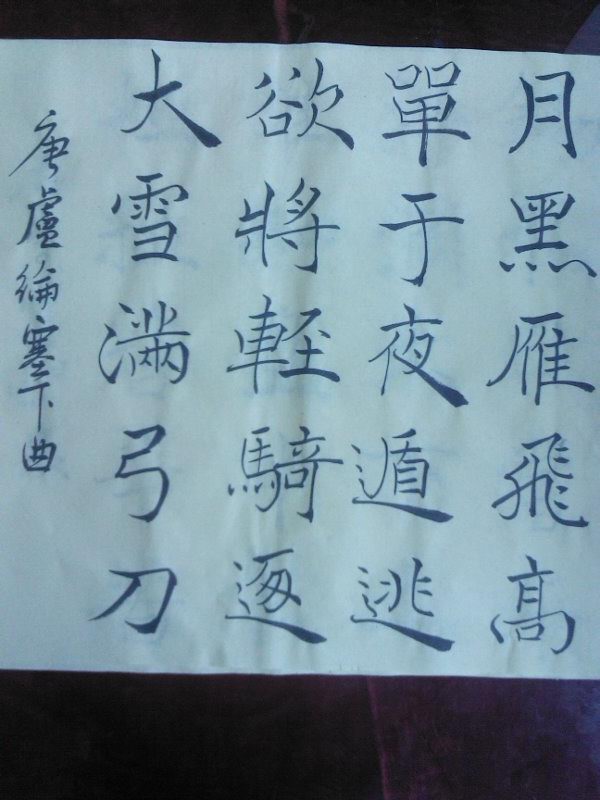 月黑雁飛高
單于夜遁逃
欲將輕騎逐
大雪滿弓刀
唐盧綸塞下曲